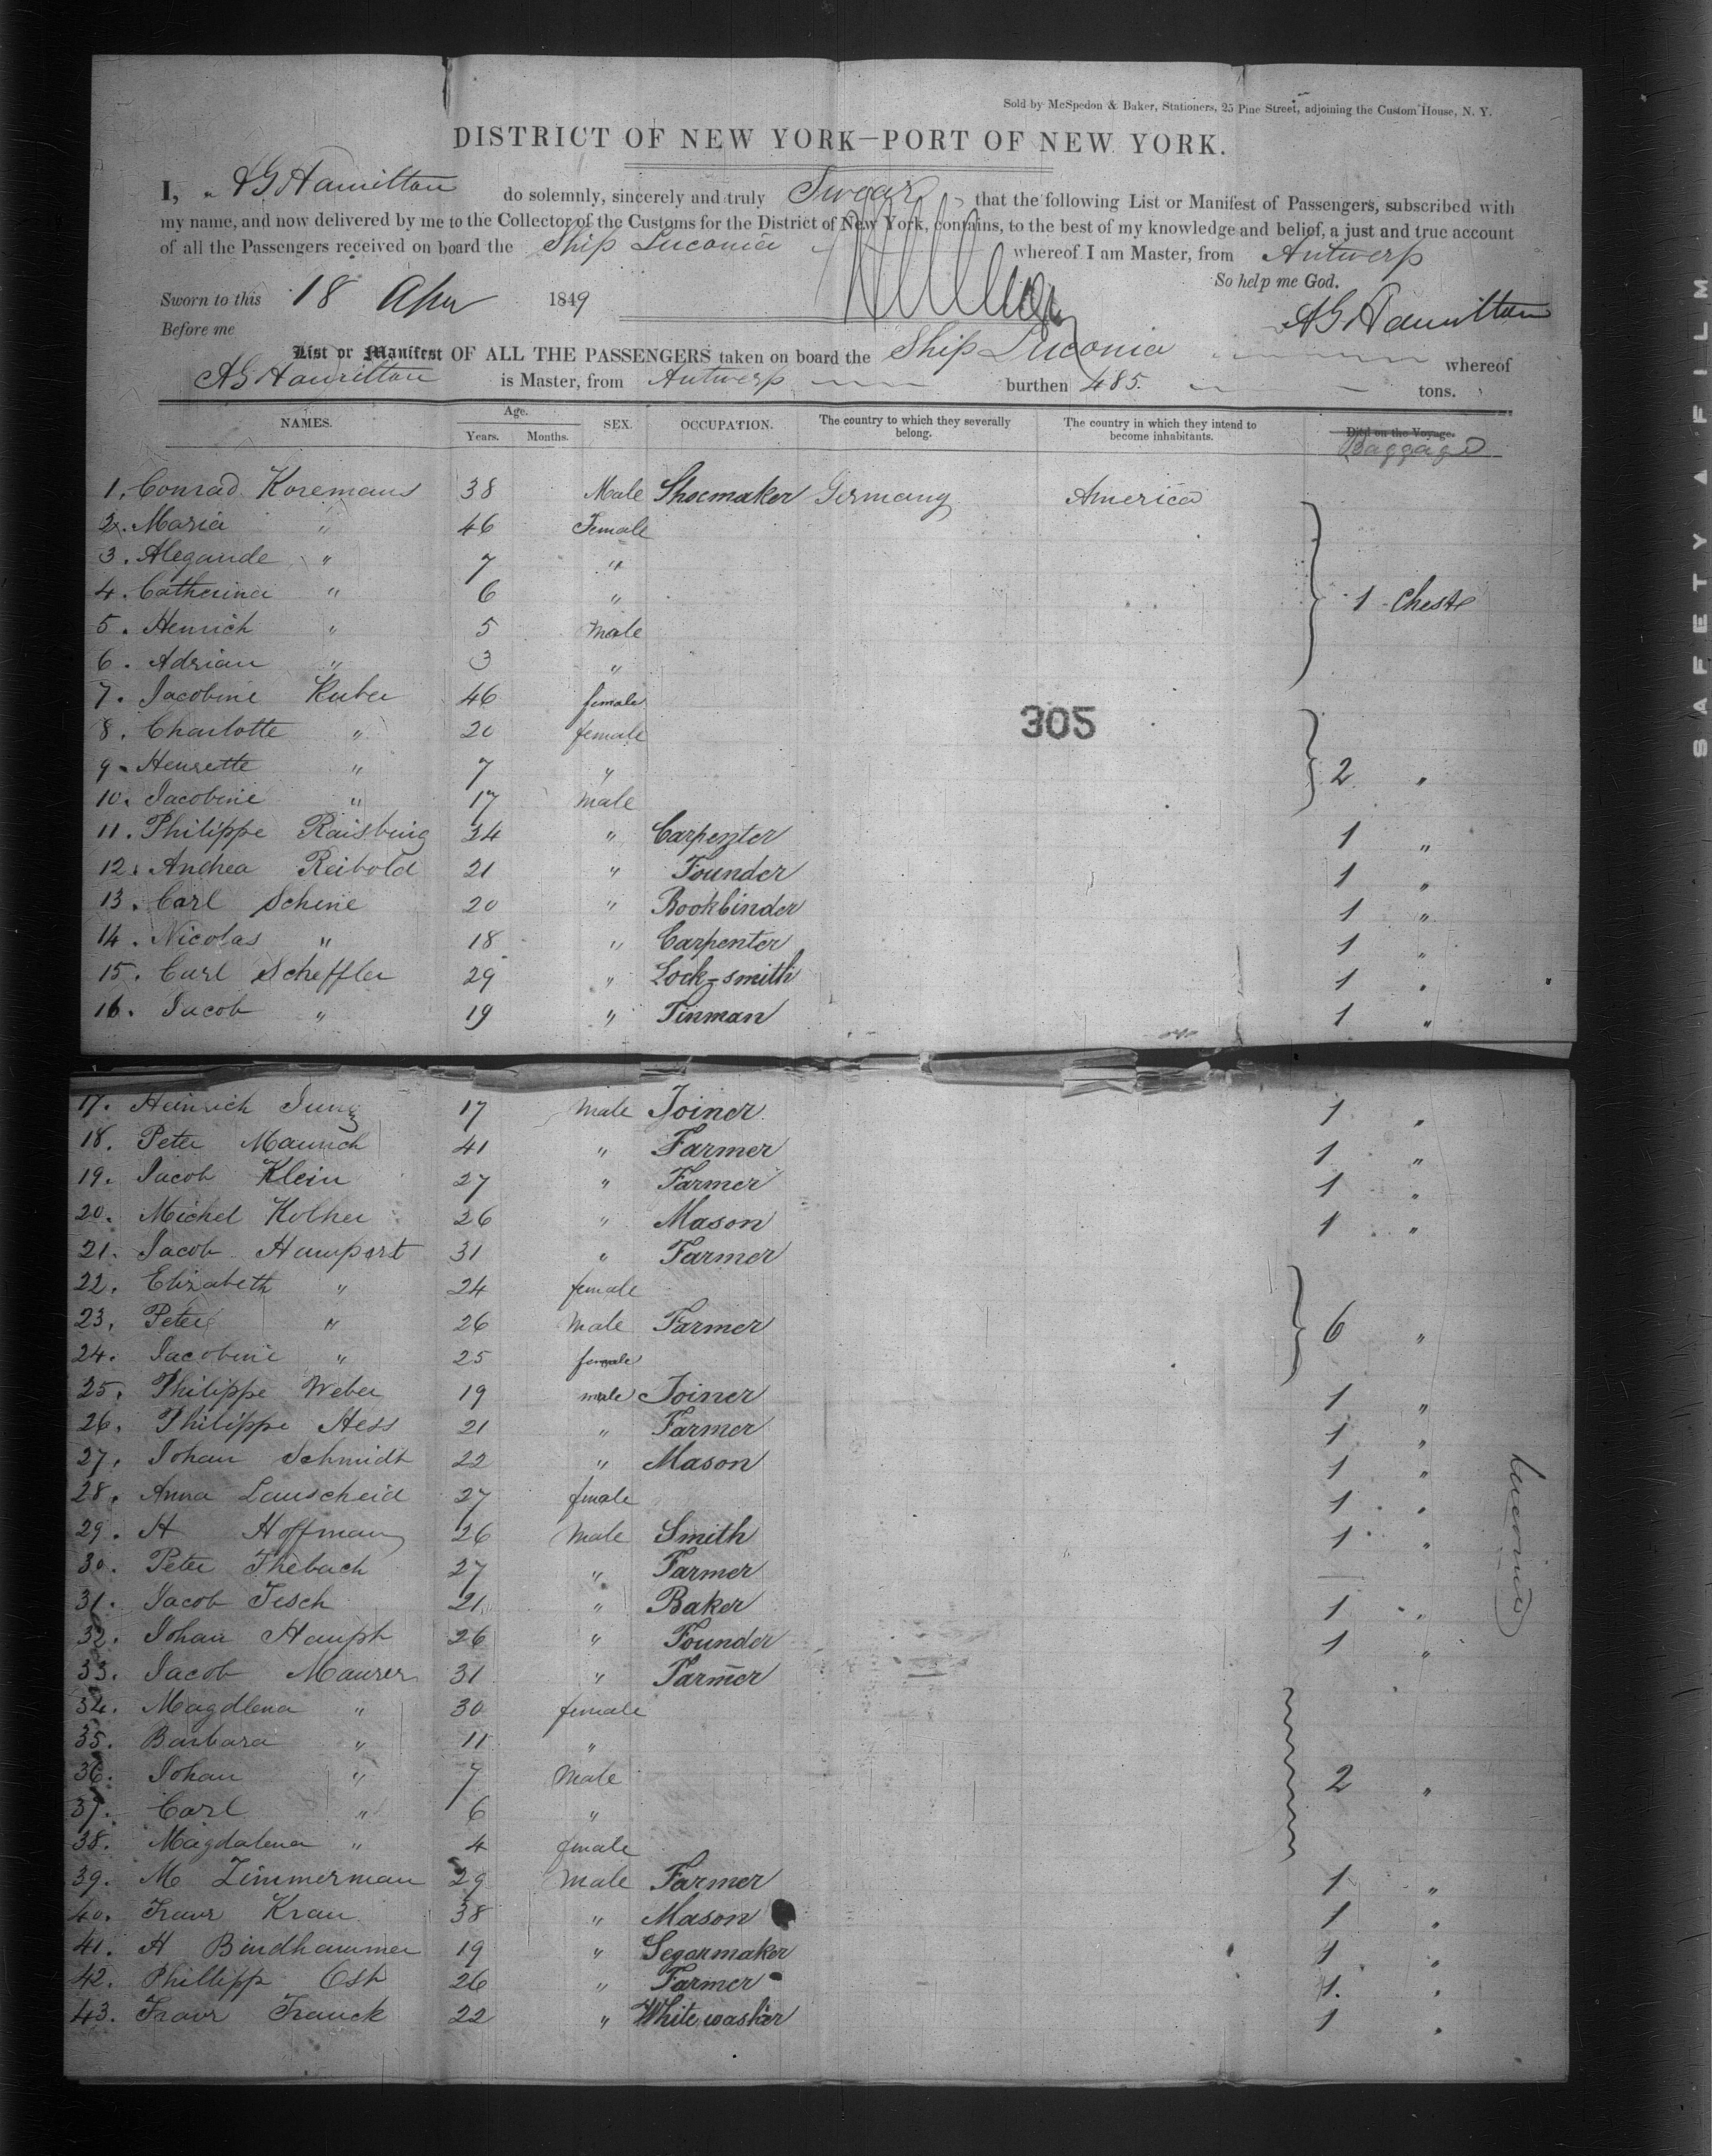 Sold by McSpedon & Baker, Stationers, 25 Pine Street, adjoining the Custom House, N. Y.
DISTRICT OF NEW YORK—PORT OF NEW YORK.
I, AG Hamilton do solemnly, sincerely and truly Swear that the following List or Manifest of Passengers, subscribed with
my name, and now delivered by me to the Collector of the Customs for the District of New York, contains, to the best of my knowledge and belief, a just and true account
of all the Passengers received on board the Ship Luconia whereof I am Master, from Antwerp
So help me God.
Sworn to this 18 Apr 1849
AG Hamilton
Before me
List or Manifest OF ALL THE PASSENGERS taken on board the Ship Luconia whereof
AG Hamilton is Master, from Antwerp burthen 485. tons.
NAMES. Age. Years. Months. SEX. OCCUPATION. The country to which they severally belong. The country in which they intend to become inhabitants. Died on the Voyage. Baggage
1. Conrad Koremans 38 Male Shoemaker Germany America
2. Maria " 46 Female
3. Alegande " 7 "
4. Catherina " 6 " 1 Chest
5. Henrich " 5 Male
6. Adrian " 3 "
7. Jacobine Kuber 46 female
305
8. Charlotte " 20 female
9. Henrette " 7 " 2 "
10. Jacobine " 17 Male
11. Philippe Raisbuig 34 " Carpenter 1 "
12. Andrea Reibold 21 " Founder 1 "
13. Carl Schine 20 " Bookbinder 1 "
14. Nicolas " 18 " Carpenter 1 "
15. Carl Scheffler 29 " Lock-smith 1 "
16. Jacob " 19 " Tinman 1 "
17. Heinrich Jung 17 Male Joiner 1 "
18. Peter Maurich 41 " Farmer 1 "
19. Jacob Klein 27 " Farmer 1 "
20. Michel Kolher 26 " Mason 1 "
21. Jacob Hampert 31 " Farmer
22. Elizabeth " 24 female
23. Peter " 26 Male Farmer 6 "
24. Jacobine " 25 female
25. Philippe Weber 19 male Joiner 1 "
26. Philippe Hess 21 " Farmer 1 "
27. Johan Schmidt 22 " Mason 1 "
28. Anna Lauscheid 27 female 1 "
29. H Hoffman 26 Male Smith 1 "
30. Peter Thebach 27 " Farmer —
31. Jacob Tesch 21 " Baker 1 "
32. Johan Hauph 26 " Founder 1 "
33. Jacob Maurer 31 " Farmer
34. Magdlena " 30 female
35. Barbara " 11 "
36. Johan " 7 Male 2 "
37. Carl " 6 "
38. Magdalena " 4 female
39. M Zimmerman 29 Male Farmer 1 "
40. Franz Krau 38 " Mason 1 "
41. H Bindhammer 19 " Segarmaker 1 "
42. Phillipp Osh 26 " Farmer 1 "
43. Franz Franck 22 " White washer 1 "
Luconia
SAFETY A FILM